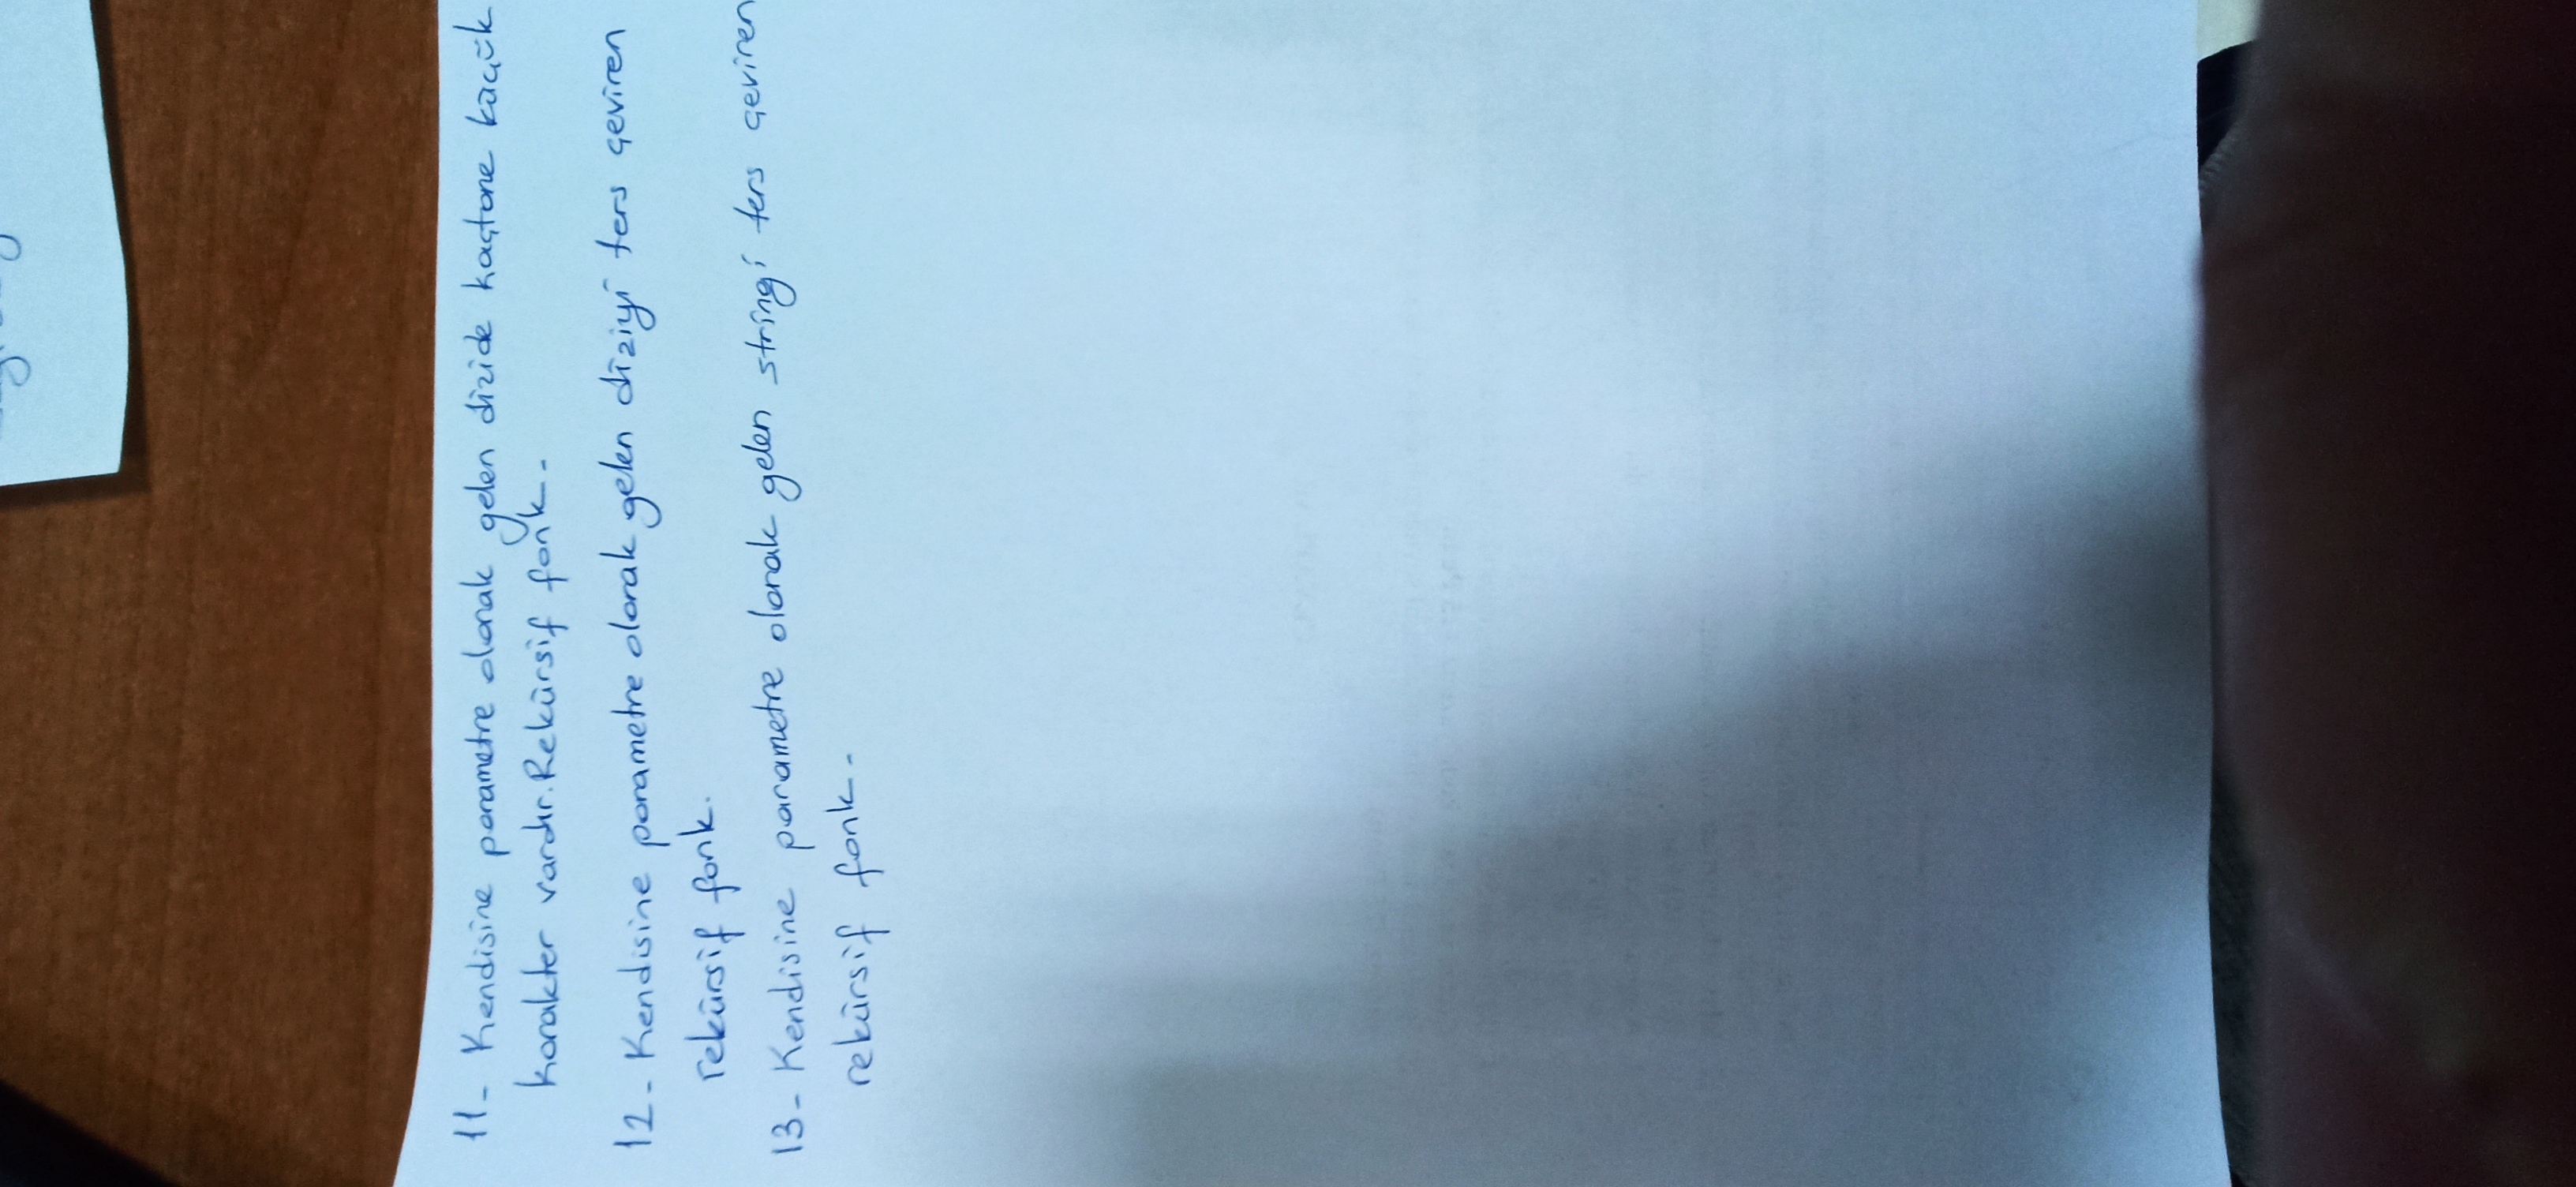 11- Kendisine parametre olarak gelen dizide kaçtane küçük
karakter vardır. Rekürsif fonk.
12- Kendisine parametre olarak gelen diziyi ters çeviren
rekürsif fonk.
13- Kendisine parametre olarak gelen stringi ters çeviren
rekürsif fonk.